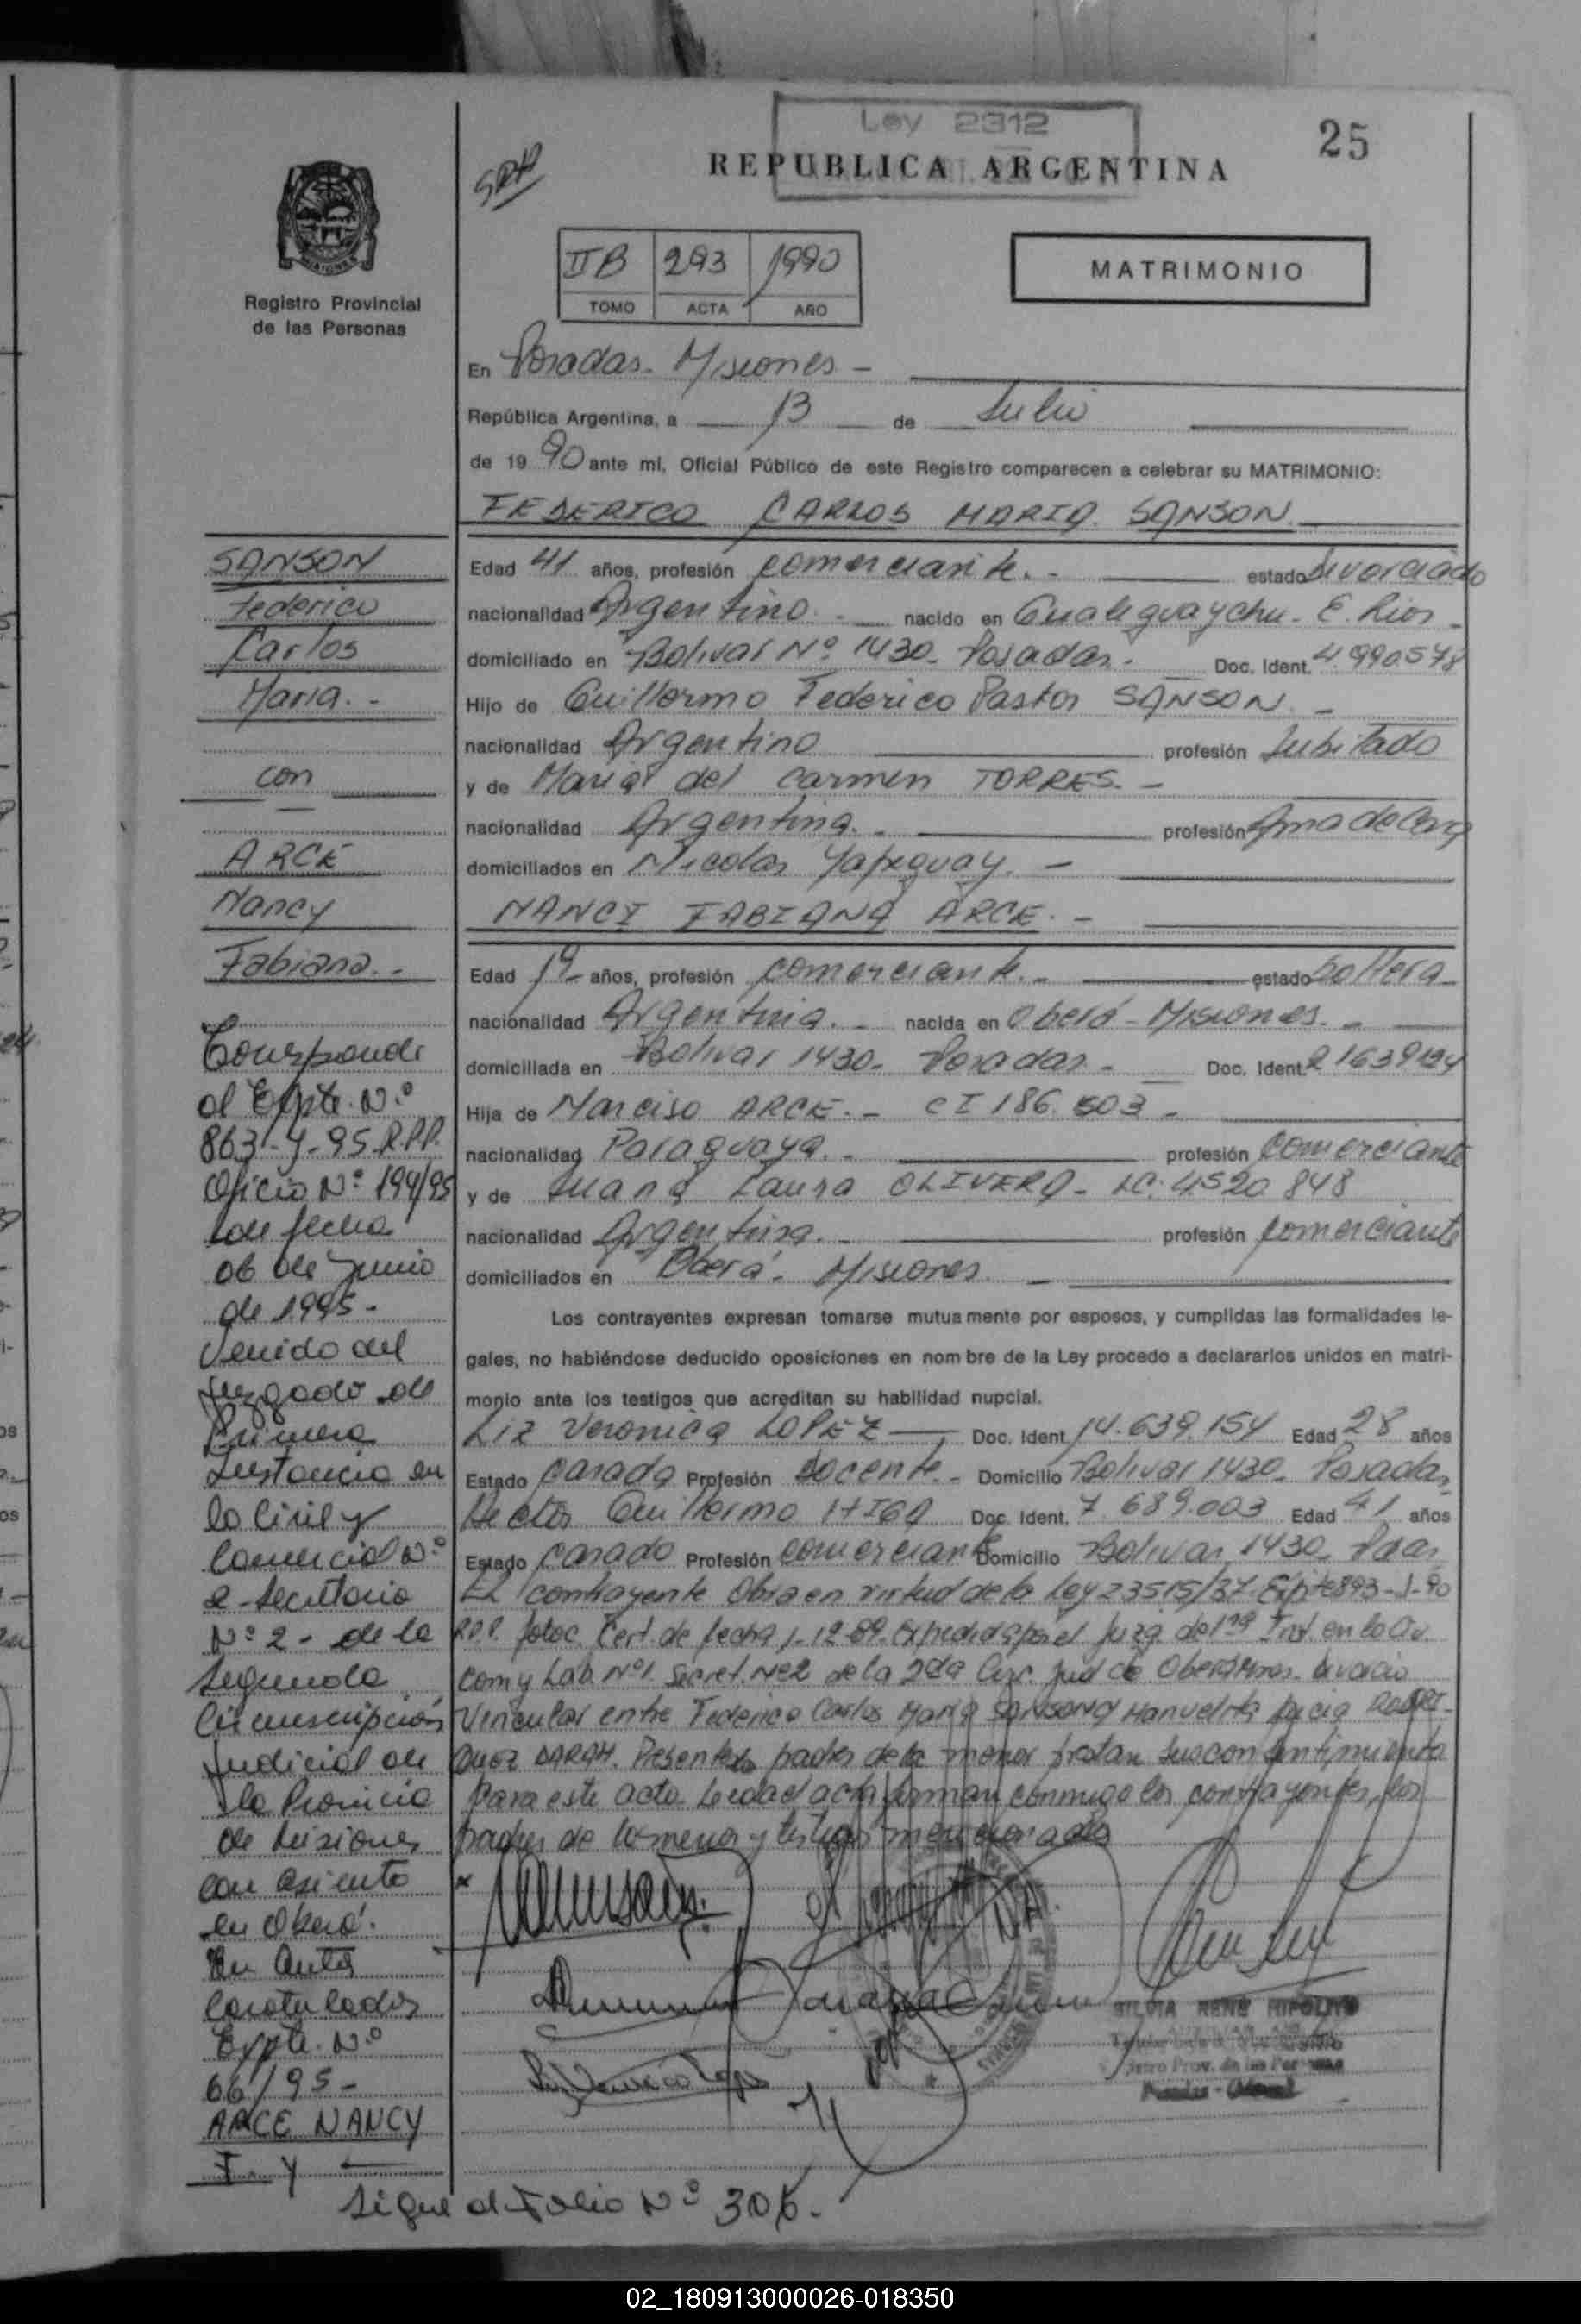 Ley 2312
25
REPUBLICA ARGENTINA
IIB 293 1990
TOMO ACTA AÑO
MATRIMONIO
Registro Provincial
de las Personas
En Posadas - Misiones -
República Argentina, a 13 de Julio
de 19 90 ante mi, Oficial Público de este Registro comparecen a celebrar su MATRIMONIO:
FEDERICO CARLOS MARIA SANSON
Edad 41 años, profesión comerciante. - estado divorciado
nacionalidad Argentino. - nacido en Gualeguaychu - E. Rios -
domiciliado en Bolivar Nº 1430 - Posadas - Doc. Ident. 4.990578
Hijo de Guillermo Federico Pastor SANSON. -
nacionalidad Argentino profesión Jubilado
y de Maria del Carmen TORRES. -
nacionalidad Argentina. - profesión Ama de Casa
domiciliados en Nicolas Yapeguay. -
NANCI FABIANA ARCE. -
Edad 19 años, profesión comerciante. - estado Soltera
nacionalidad Argentina. - nacida en Oberá - Misiones. -
domiciliada en Bolivar 1430 - Posadas - Doc. Ident. 21639134
Hija de Narciso ARCE. - CI 186.503 -
nacionalidad Paraguaya. - profesión comerciante
y de Juana Laura OLIVERA - LC. 4520848
nacionalidad Argentina. - profesión comerciante
domiciliados en Oberá - Misiones -
Los contrayentes expresan tomarse mutuamente por esposos, y cumplidas las formalidades le-
gales, no habiéndose deducido oposiciones en nombre de la Ley procedo a declararlos unidos en matri-
monio ante los testigos que acreditan su habilidad nupcial.
Liz Veronica LOPEZ Doc. Ident. 14.639.154 Edad 28 años
Estado Casada Profesión Docente. - Domicilio Bolivar 1430 - Posadas
Hector Guillermo HIGA Doc. Ident. 7.689.003 Edad 41 años
Estado Casado Profesión comerciante Domicilio Bolivar 1430 - Pdas
El contrayente Obra en virtud de la Ley 23515/87 - Expte 893-J-90
R.P.P. fotoc. Cert. de fecha 1-12-89. Expedida por el Juzg. de 1ra Inst. en lo Civ.
Com y Lab. Nº1. Secret. Nº2 de la 2da Circ. Jud. de Oberá Mnes. divorcio
Vincular entre Federico Carlos Maria SANSON y Manuelita Lucia RODRI-
GUEZ DARAH. Presentes padres de la menor prestan su consentimiento
para este acto. Leida el acta firman conmigo los contrayentes, los
padres de la menor y testigos mencionados
SILVIA RENE HIPOLITO
Registro Prov. de las Personas
SANSON
Federico
Carlos
Maria. -
con
ARCE
Nancy
Fabiana. -
Corresponde
al Expte. Nº
863-Y-95 R.P.P.
Oficio Nº 194/95
de fecha
06 de Junio
de 1995 -
Venido del
Juzgado de
Primera
Instancia en
lo Civil y
Comercial Nº
2 - Secretaria
Nº 2 - de la
Segunda
Circunscripción
Judicial de
la Provincia
de Misiones
con asiento
en Oberá.
En Autos
Caratulados
Expte. Nº
66/95 -
ARCE NANCY
F. y
Sigue al Folio Nº 306. -
02_180913000026-018350